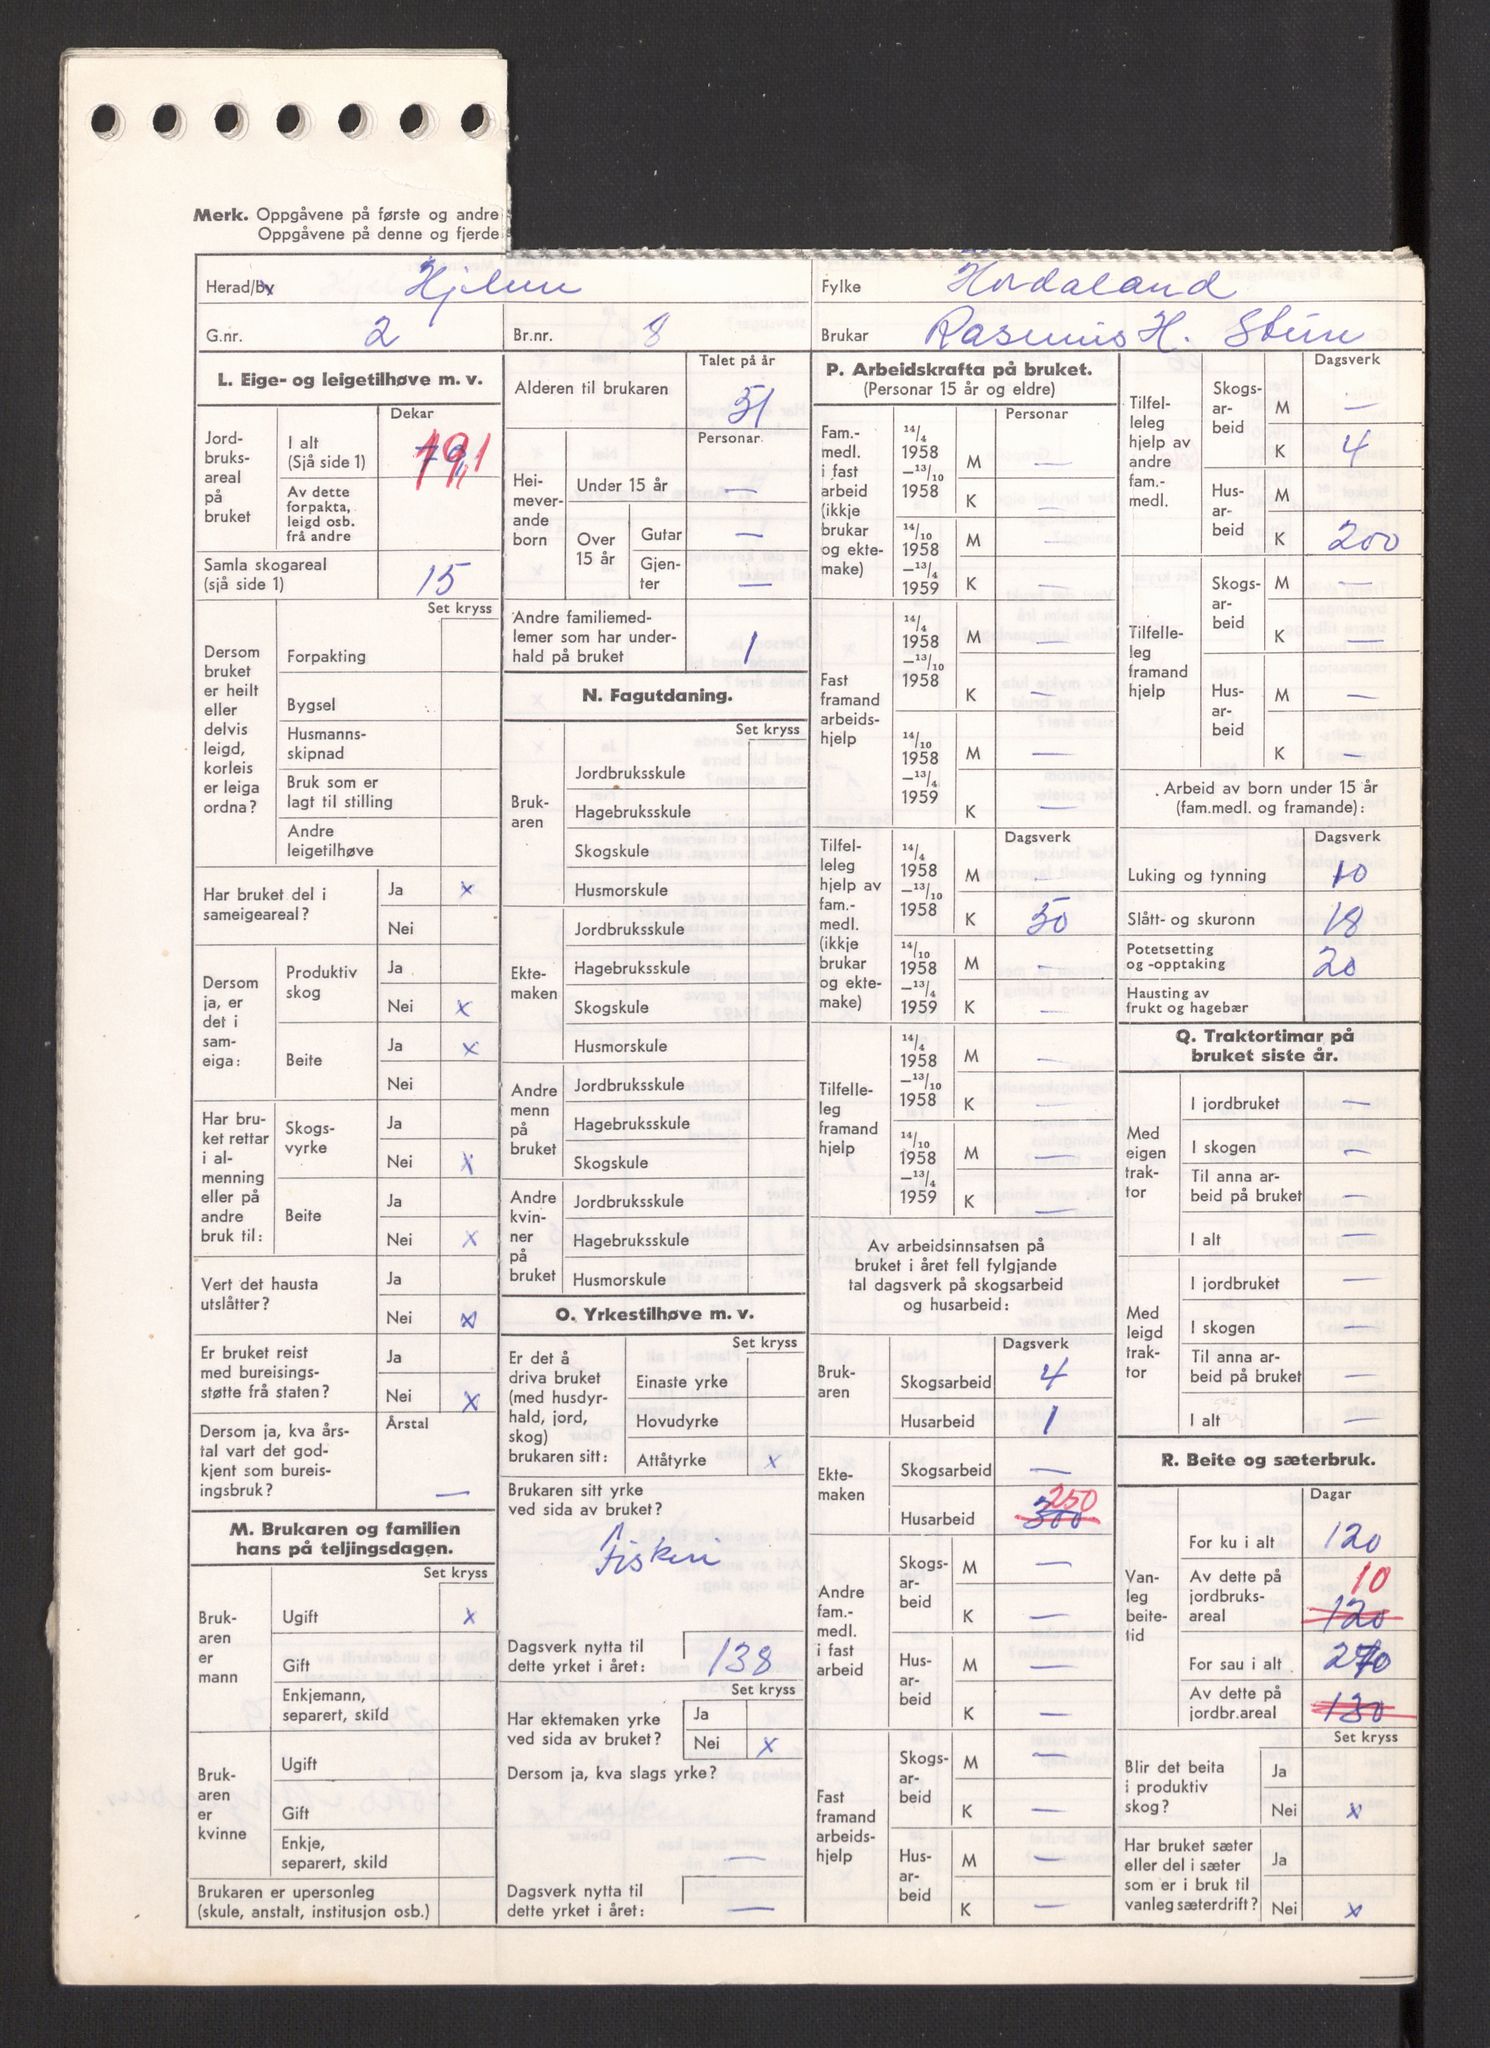 Merk. Oppgåvene på første og andre
Oppgåvene på denne og fjerde
Herad/By Hjelme
Fylke Hordaland
G.nr. 2
Br.nr. 8
Brukar Rasmus H. Stein
L. Eige- og leigetilhøve m. v.
Dekar
Jordbruksareal på bruket
I alt (Sjå side 1)
Av dette forpakta, leigd osb. frå andre
Samla skogareal (sjå side 1) 15
Set kryss
Dersom bruket er heilt eller delvis leigd, korleis er leiga ordna?
Forpakting
Bygsel
Husmannsskipnad
Bruk som er lagt til stilling
Andre leigetilhøve
Har bruket del i sameigeareal?
Ja x
Nei
Dersom ja, er det i sameiga:
Produktiv skog
Ja
Nei x
Beite
Ja x
Nei
Har bruket rettar i almenning eller på andre bruk til:
Skogsvyrke
Ja
Nei x
Beite
Ja
Nei x
Vert det hausta utslåtter?
Ja
Nei x
Er bruket reist med bureisingsstøtte frå staten?
Ja
Nei x
Dersom ja, kva årstal vart det godkjent som bureisingsbruk?
Årstal
—
M. Brukaren og familien hans på teljingsdagen.
Set kryss
Brukaren er mann
Ugift x
Gift
Enkjemann, separert, skild
Brukaren er kvinne
Ugift
Gift
Enkje, separert, skild
Brukaren er upersonleg (skule, anstalt, institusjon osb.)
Talet på år
Alderen til brukaren 51
Personar
Heimeverande born
Under 15 år —
Over 15 år
Gutar —
Gjenter —
Andre familiemedlemer som har underhald på bruket 1
N. Fagutdaning.
Set kryss
Brukaren
Jordbruksskule
Hagebruksskule
Skogskule
Husmorskule
Ektemaken
Jordbruksskule
Hagebruksskule
Skogskule
Husmorskule
Andre menn på bruket
Jordbruksskule
Hagebruksskule
Skogskule
Andre kvinner på bruket
Jordbruksskule
Hagebruksskule
Husmorskule
O. Yrkestilhøve m. v.
Set kryss
Er det å driva bruket (med husdyrhald, jord, skog) brukaren sitt:
Einaste yrke
Hovudyrke
Attåtyrke x
Brukaren sitt yrke ved sida av bruket?
Fiskeri
Dagsverk nytta til dette yrket i året: 138
Set kryss
Har ektemaken yrke ved sida av bruket?
Ja
Nei x
Dersom ja, kva slags yrke?
—
Dagsverk nytta til dette yrket i året: —
P. Arbeidskrafta på bruket.
(Personar 15 år og eldre)
Personar
Fam.-medl. i fast arbeid (ikkje brukar og ektemake)
14/4 1958 —13/10 1958
M —
K —
14/10 1958 —13/4 1959
M —
K —
Fast framand arbeidshjelp
14/4 1958 —13/10 1958
M —
K —
14/10 1958 —13/4 1959
M —
K —
Dagsverk
Tilfelleleg hjelp av fam.-medl. (ikkje brukar og ektemake)
14/4 1958 —13/10 1958
M —
K 50
14/10 1958 —13/4 1959
M —
K —
Tilfelleleg framand hjelp
14/4 1958 —13/10 1958
M —
K —
14/10 1958 —13/4 1959
M —
K —
Av arbeidsinnsatsen på bruket i året fell fylgjande tal dagsverk på skogsarbeid og husarbeid:
Dagsverk
Brukaren
Skogsarbeid 4
Husarbeid 1
Ektemaken
Skogsarbeid —
250
Husarbeid 300
Andre fam.-medl. i fast arbeid
Skogsarbeid
M —
K —
Husarbeid
M —
K —
Fast framand arbeidshjelp
Skogsarbeid
M —
K —
Husarbeid
M —
K —
Dagsverk
Tilfelleleg hjelp av andre fam.-medl.
Skogsarbeid
M —
K 4
Husarbeid
M
K 200
Tilfelleleg framand hjelp
Skogsarbeid
M —
K —
Husarbeid
M —
K —
Arbeid av born under 15 år (fam.medl. og framande):
Dagsverk
Luking og tynning 10
Slått- og skuronn 18
Potetsetting og -opptaking 20
Hausting av frukt og hagebær
Q. Traktortimar på bruket siste år.
Med eigen traktor
I jordbruket —
I skogen —
Til anna arbeid på bruket —
I alt —
Med leigd traktor
I jordbruket —
I skogen —
Til anna arbeid på bruket —
I alt —
R. Beite og sæterbruk.
Dagar
Vanleg beitetid
For ku i alt 120
10
Av dette på jordbruksareal 120
For sau i alt 270
Av dette på jordbr.areal 130
Set kryss
Blir det beita i produktiv skog?
Ja
Nei x
Har bruket sæter eller del i sæter som er i bruk til vanleg sæterdrift?
Ja
Nei x